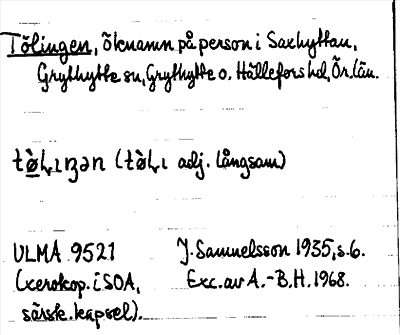 Tölingen, öknamn på person i Saxhyttan,
Grythytte sn, Grythytte o. Hällefors hd, Ör. län.
tø̀ɭıŋən (tø̀ɭı adj. långsam)
ULMA 9521 J. Samuelsson 1935, s. 6.
(xerokop. i SOA, Exc. av A.-B.H. 1968.
särsk. kapsel).